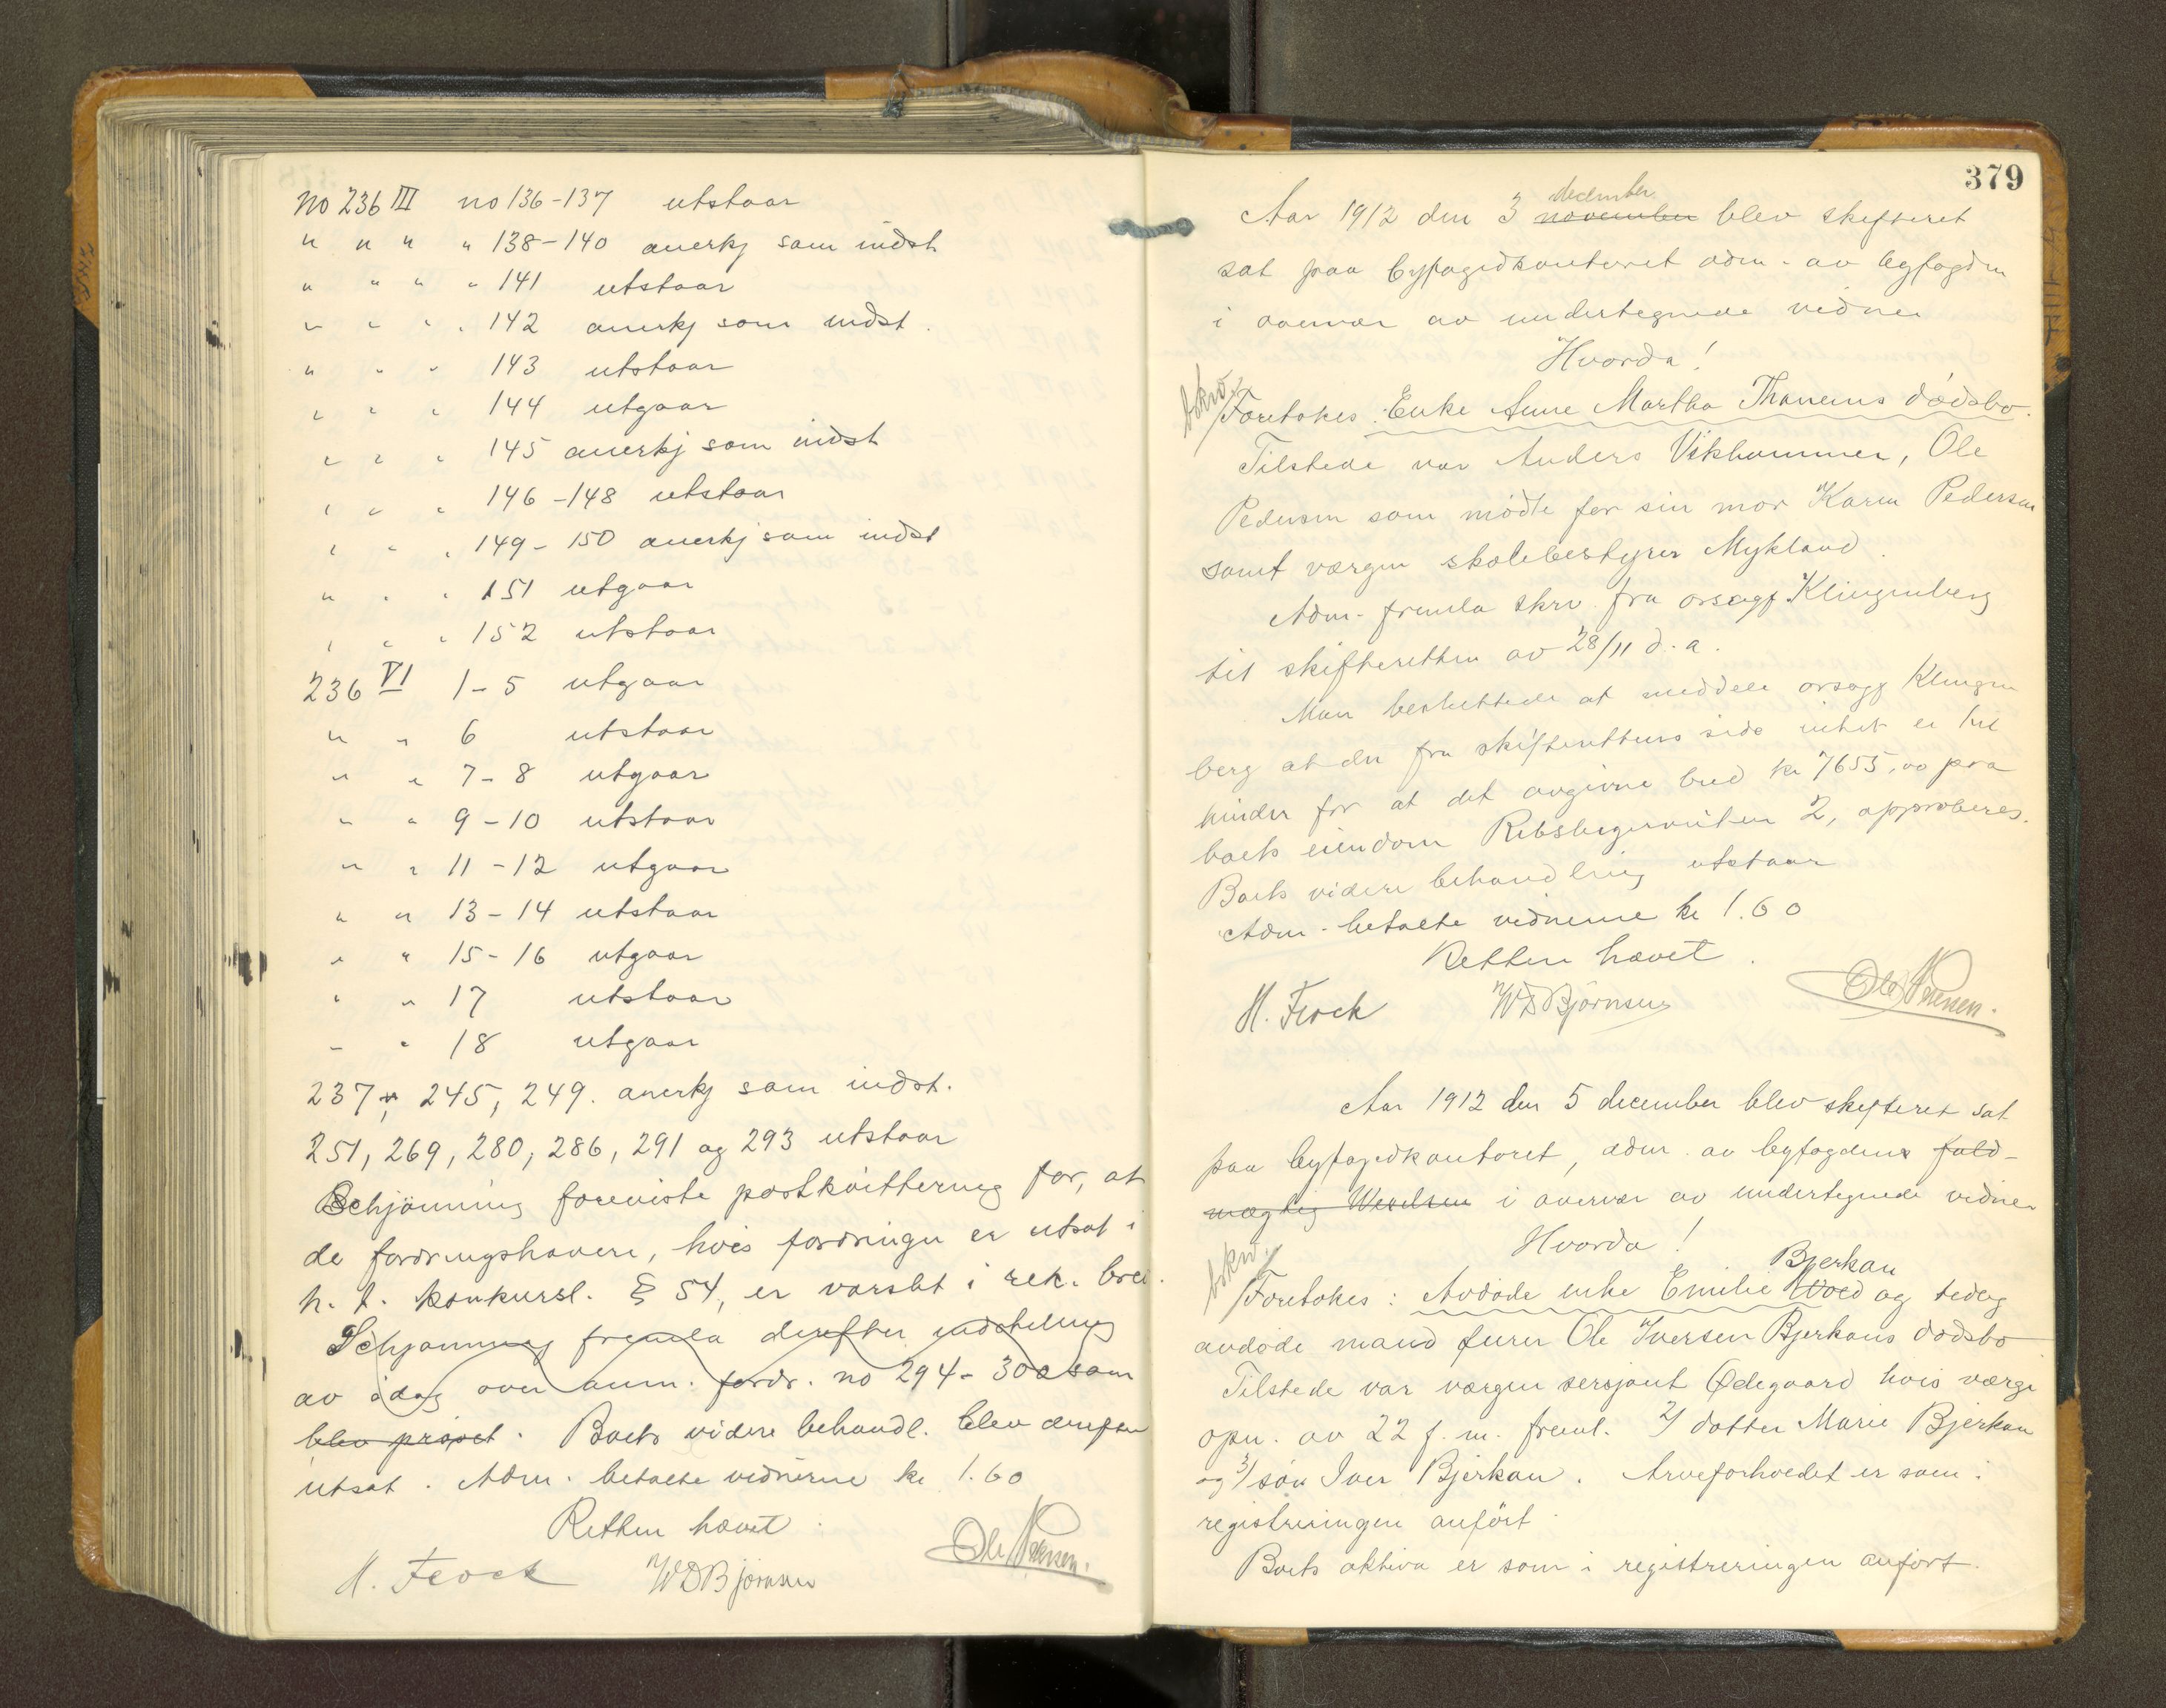 no 236 III no 136-137 utstaar
" " " " 138-140 anerkj som indst
" " " " 141 utstaar
" " " " 142 anerkj som indst.
" " " 143 utstaar
" " " 144 utgaar
" " " 145 anerkj som indst
" " " 146-148 utstaar
" " " 149-150 anerkj som indst
" " " 151 utgaar
" " " 152 utstaar
236 VI 1-5 utgaar
" " 6 utstaar
" " 7-8 utgaar
" " 9-10 utstaar
" " 11-12 utgaar
" " 13-14 utstaar
" " 15-16 utgaar
" " 17 utstaar
" " 18 utgaar
237, 245, 249. anerkj som indst.
251, 269, 280, 286, 291 og 293 utstaar
Schjønning foreviste postkvittering for, at
de fordringshavere, hvis fordringer er utsat i
h. t. konkursl. § 54, er varslet i rek. brev.
Schjønning fremla derefter indstilling
av idag over anm. fordr. no 294-300 som
blev prøvet. Boets videre behandl. blev derefter
utsat. Adm. betalte vidnerne kr 1.60
Retten hævet.
H. Flock WDBjørnsen Ole Iversen.
379
december
Aar 1912 den 3 november blev skifteret
sat paa byfogedkontoret adm. av byfogden
i overvær av undertegnede vidner
Hvorda!
bskr.
Foretokes: Enke Anne Martha Thanems dødsbo.
Tilstede var Anders Vikhammer, Ole
Pedersen som mødte for sin mor Karen Pedersen
samt værgen skolebestyrer Mykland.
Adm. fremla skrv. fra orsagf. Klingenberg
til skifteretten av 28/11 d. a.
Man besluttede at meddele orsagf Klingen
berg at der fra skifterettens side intet er til
hinder for at det avgivne bud kr 7655,00 paa
boets eiendom 2, approberes.
Boets videre behandling utstaar
Adm. betalte vidnerne kr 1.60
Retten hævet.
H. Flock WDBjørnsen Ole Iversen.
Aar 1912 den 5 december blev skifteret sat
paa byfogedkontoret, adm. av byfogdens fuld-
mægtig i overvær av undertegnede vidner
Hvorda!
bskr. Bjerkan
Foretokes: Avdøde enke Emilie Wold og tidlig
avdøde mand furer Ole Iversen Bjerkans dødsbo
Tilstede var værgen sersjant Ødegaard hvis værge
opn. av 22 f. m. freml. 2/ datter Marie Bjerkan
og 3/ søn Iver Bjerkan. Arveforholdet er som i
registreringen anført.
Boets aktiva er som i registreringen anført.